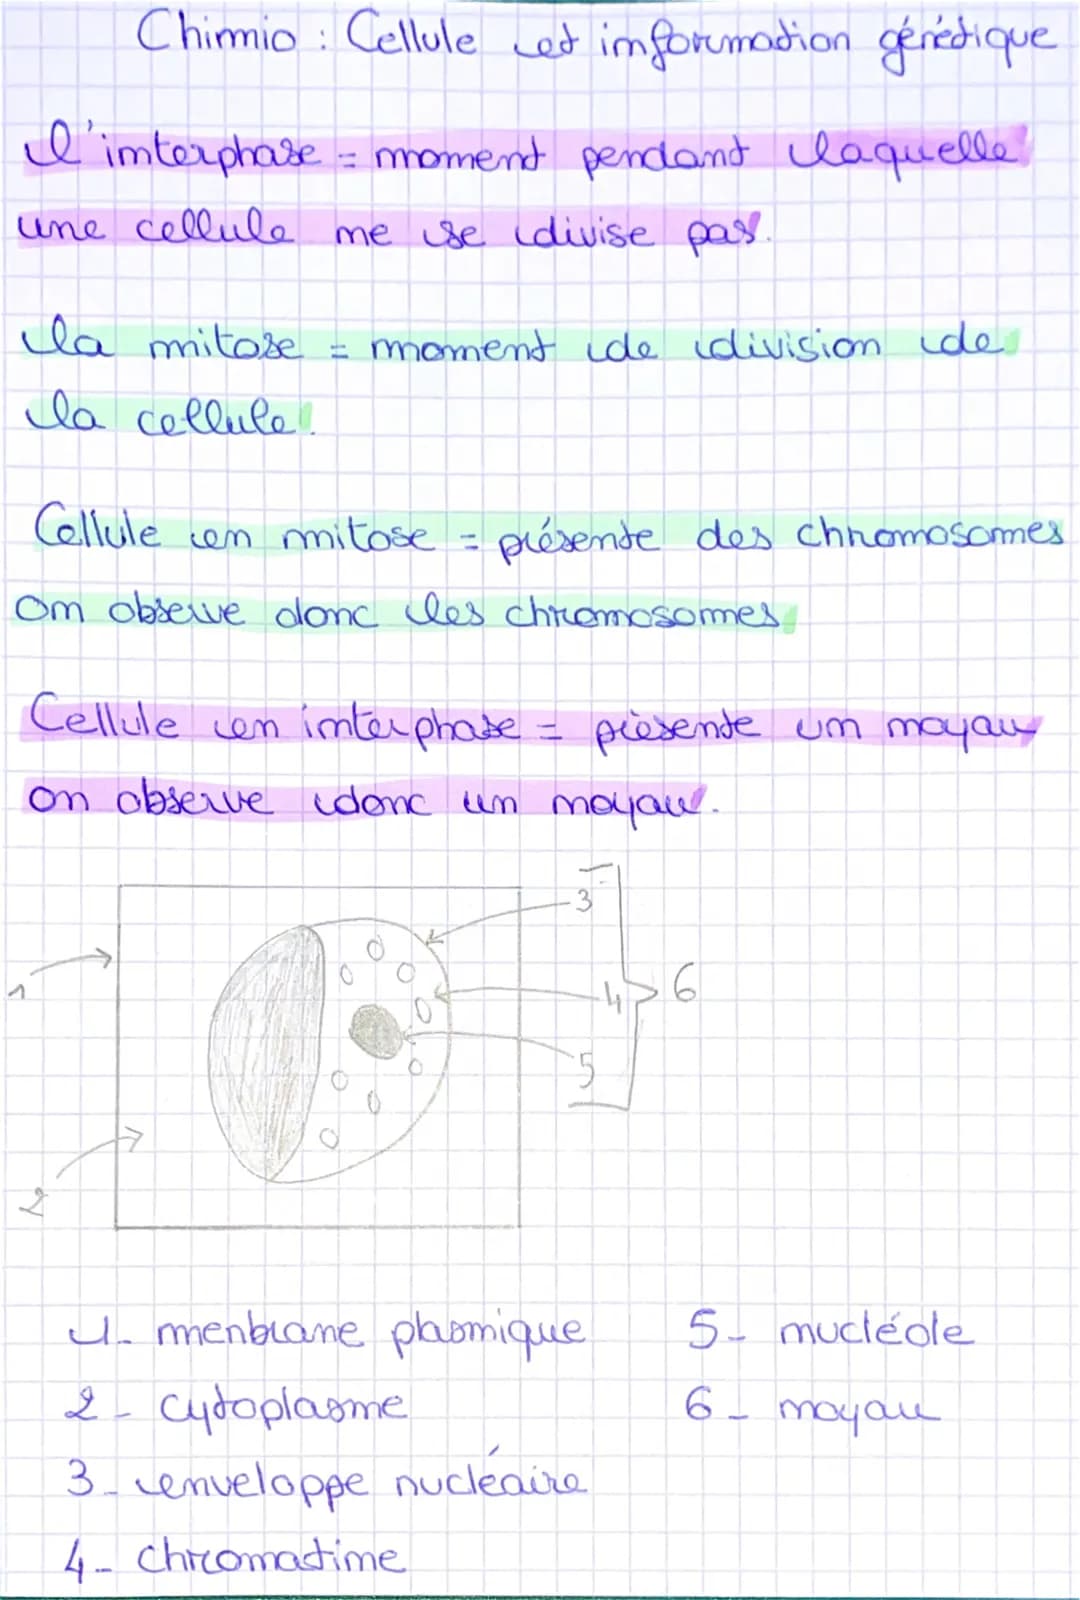 Chimio : Cellule et information génétique
l'interphase = moment pendant laquelle
une cellule ne se divise pas.
la mitose = moment de division de
la cellule.
Cellule en mitose = présente des chromosomes
on observe donc les chromosomes
Cellule en interphase = présente un noyau
on observe donc un noyau.
3
1
4
6
5
2
1- menbrane plasmique
2- cytoplasme
3- enveloppe nucléaire
4- chromatine
5- nucléole
6- noyau